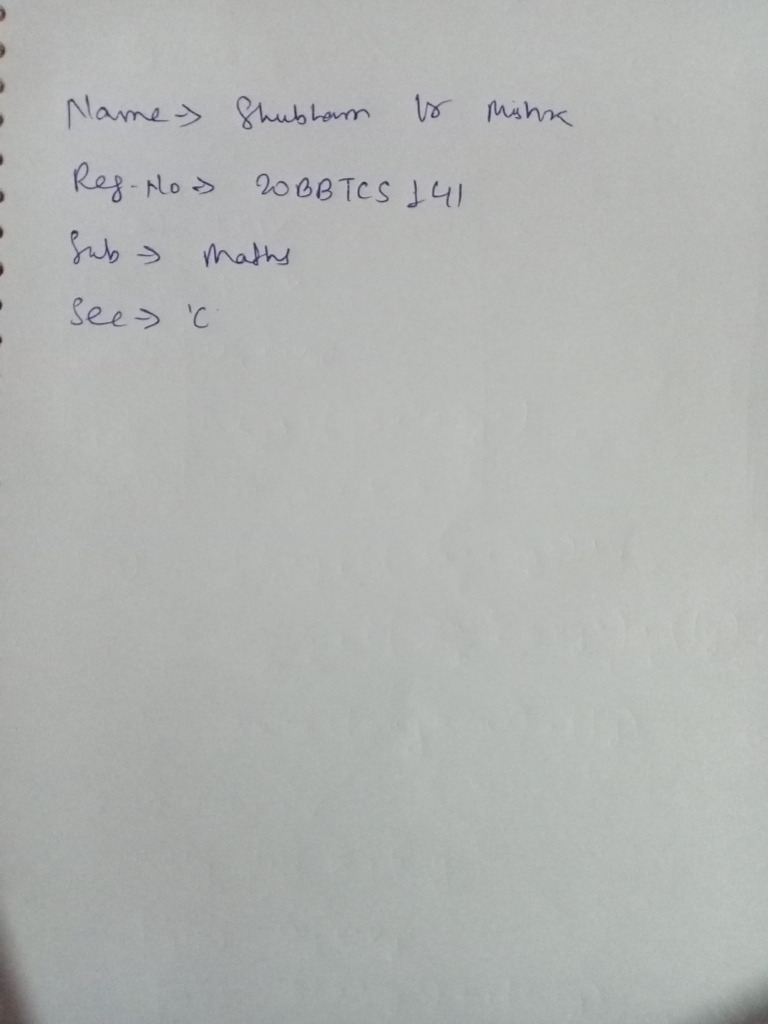 Name → Shubham Kr Mishra
Reg-No → 20BBTCS141
Sub → Maths
Sec → 'C'